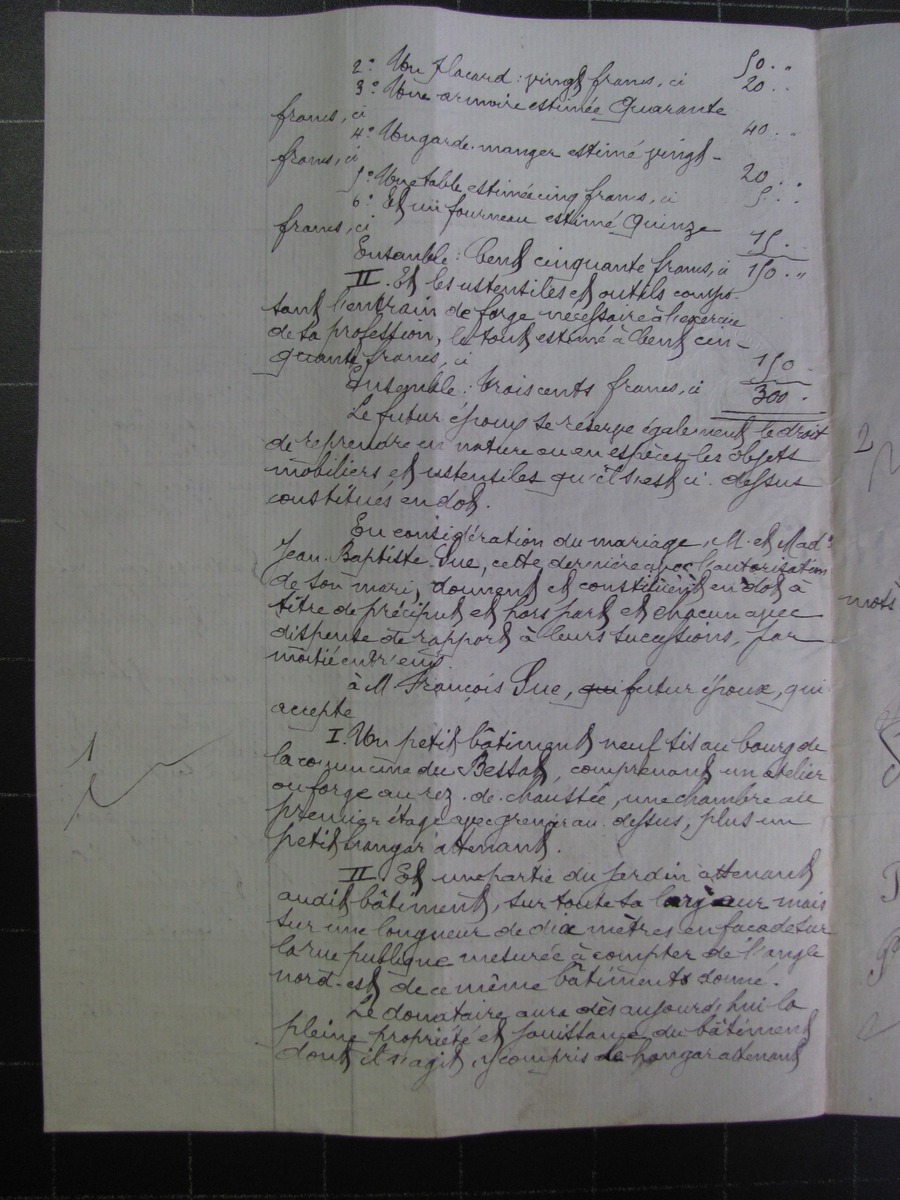 50. "
2° Un placard : vingt francs, ci 20. "
3° Une armoire estimée Quarante
francs, ci 40. "
4° Un garde-manger estimé vingt-
francs, ci 20. "
5° Une table estimée cinq francs, ci 5. "
6° Et un fourneau estimé Quinze
francs, ci 15. "
Ensemble : Cent cinquante francs, ci 150. "
II. Et les ustensiles et outils compo-
sant l'entrain de forge nécessaire à l'exercice
de sa profession, le tout estimé à Cent cin-
quante francs, ci 150
Ensemble : trois cents francs, ci 300.
Le futur époux se réserve également le droit
de reprendre en nature ou en espèces les objets
mobiliers et ustensiles qu'il s'est ci-dessus
constitués en dot.
En considération du mariage, M. et Mad°
Jean-Baptiste Gue, cette dernière avec l'autorisation
de son mari, donnent et constituent en dot à
titre de préciput et hors part et chacun avec
dispense de rapport à leurs successions, par
moitié entr'eux
à M. François Gue, qui futur époux, qui
accepte
I. Un petit bâtiment neuf sis au bourg de
la commune du Bessat, comprenant un atelier
ou forge au rez-de-chaussée, une chambre au
premier étage avec grenier au-dessus, plus un
petit hangar attenant.
II. Et une partie du jardin attenant
audit bâtiment, sur toute sa largeur mais
sur une longueur de dix mètres en façade sur
la rue publique mesurée à compter de l'angle
nord-est de ce même bâtiment donné.
Le donataire aura dès aujourd'hui la
pleine propriété et jouissance du bâtiment
dont il s'agit, y compris le hangar attenant
1
2
mots